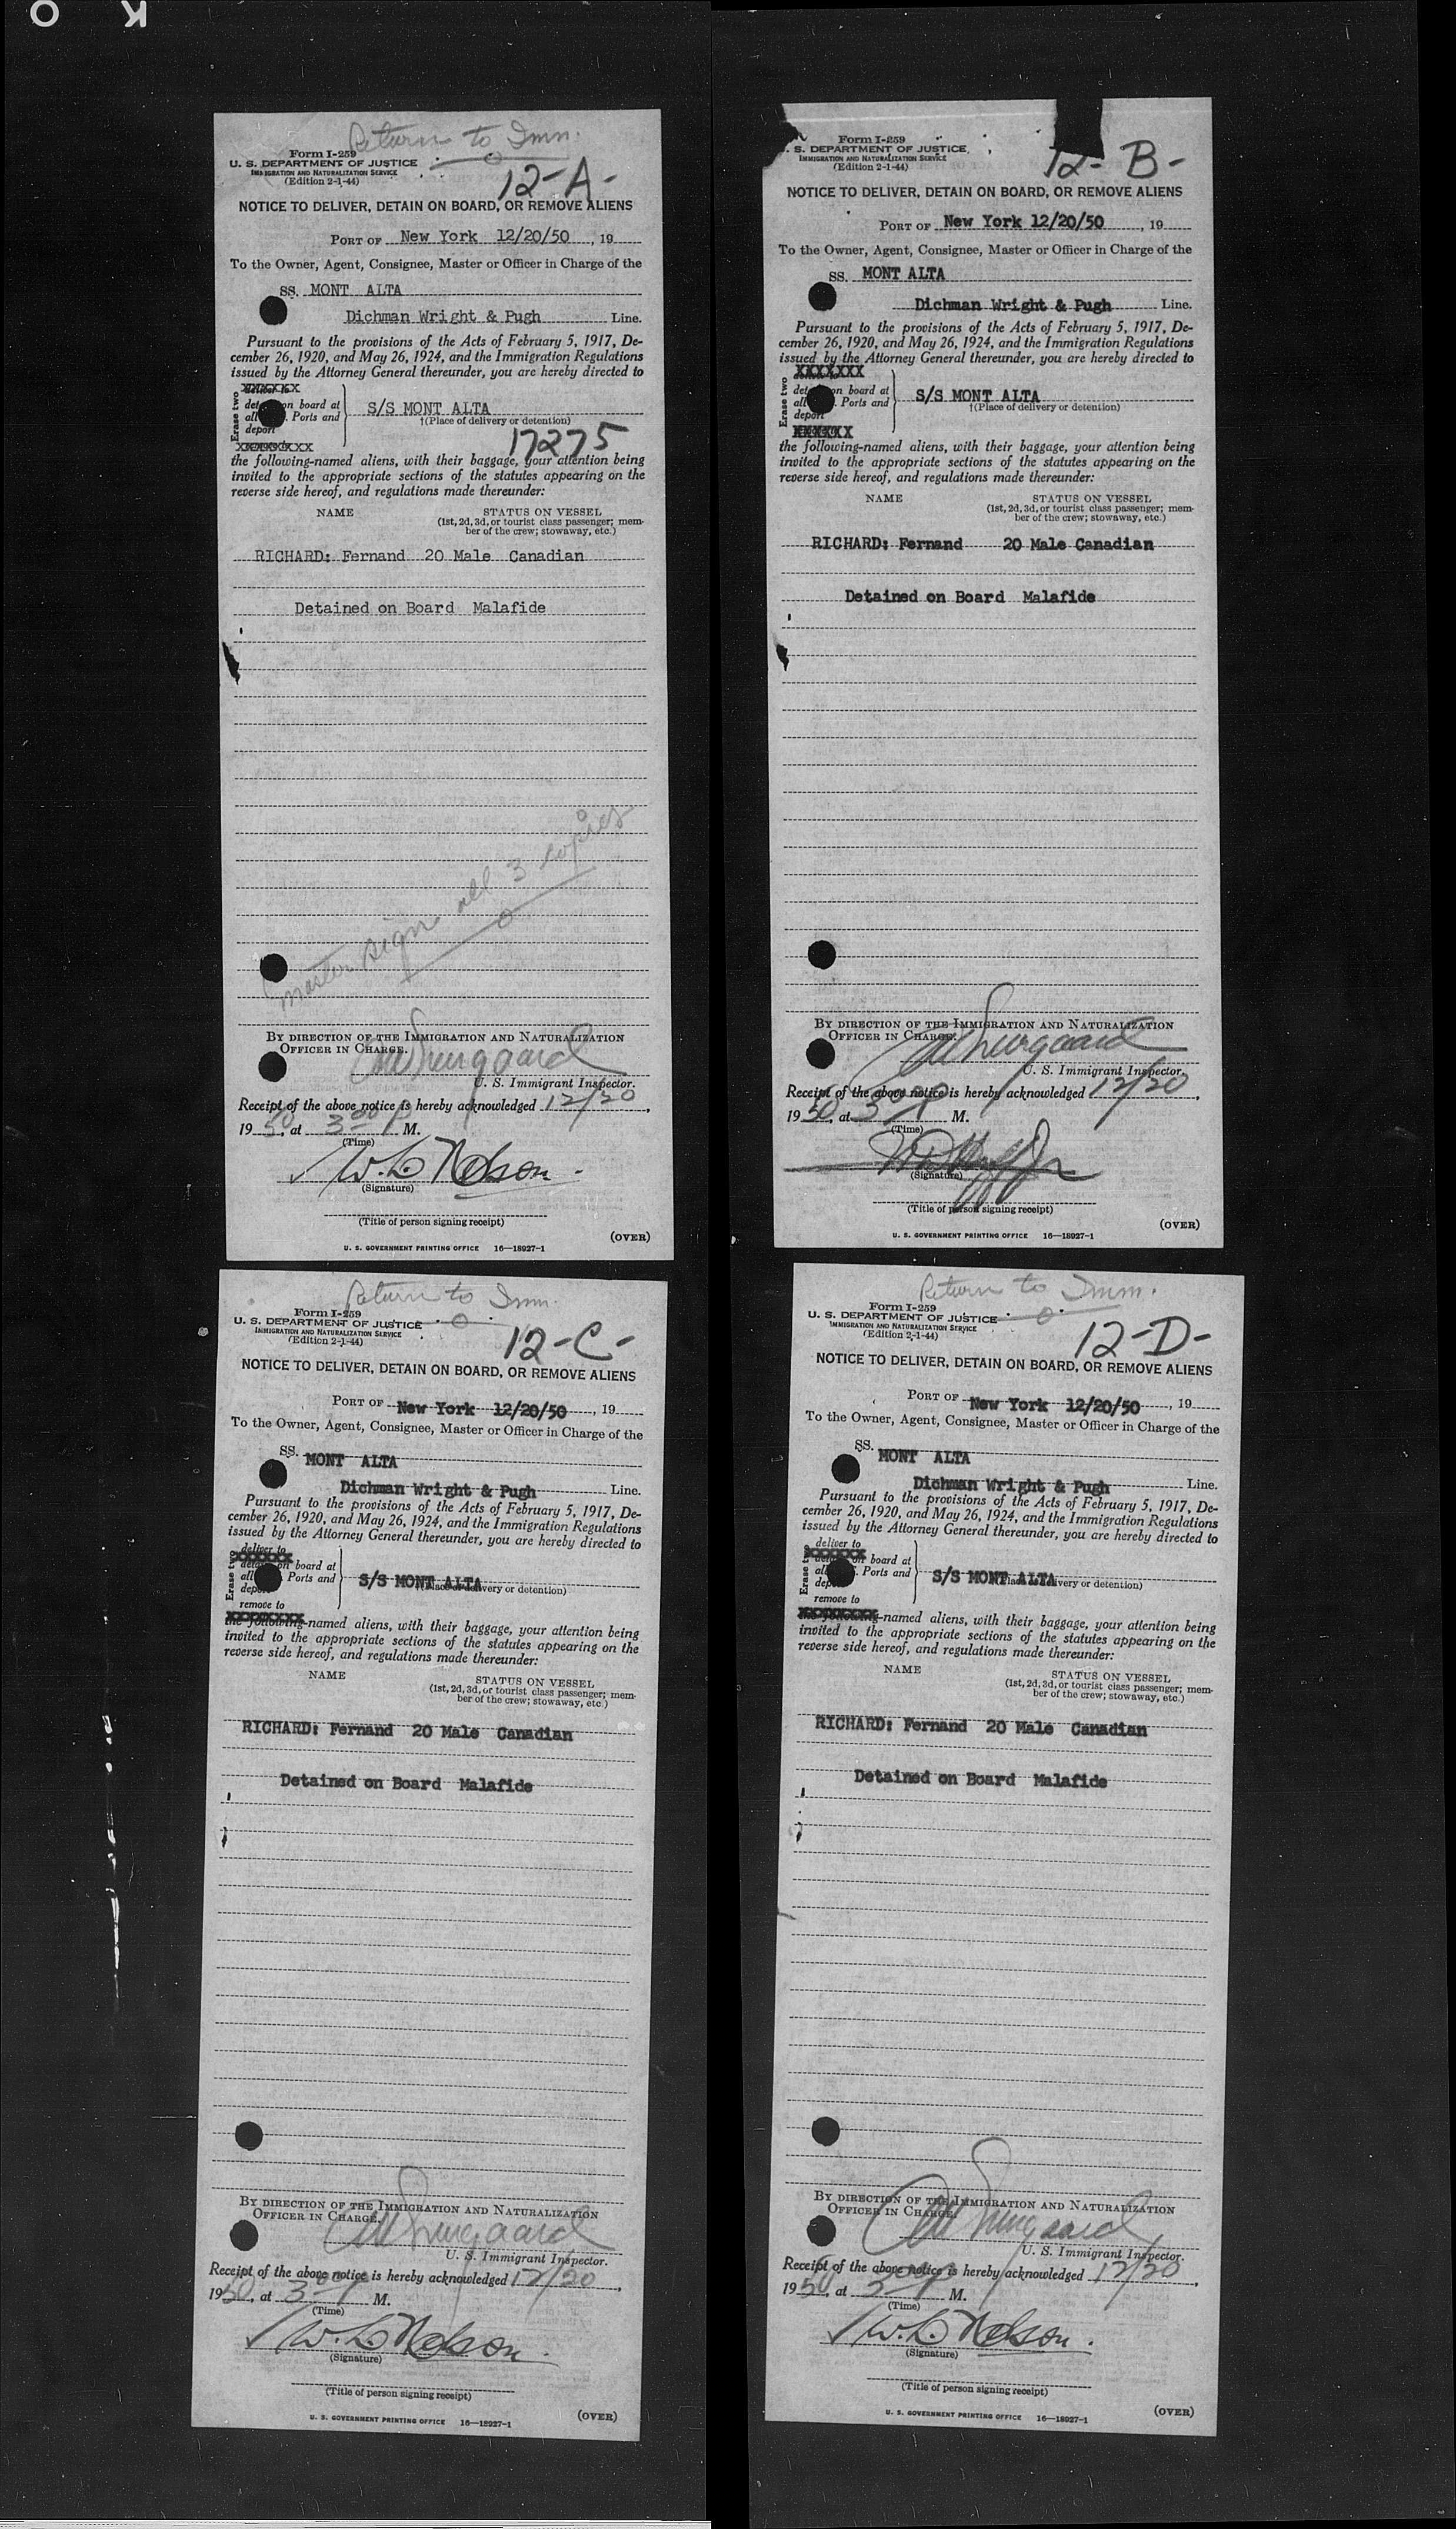 O K
Return to Imm.
Form I-259
U. S. DEPARTMENT OF JUSTICE
IMMIGRATION AND NATURALIZATION SERVICE
(Edition 2-1-44)
12-A-
NOTICE TO DELIVER, DETAIN ON BOARD, OR REMOVE ALIENS
PORT OF New York 12/20/50, 19
To the Owner, Agent, Consignee, Master or Officer in Charge of the
SS. MONT ALTA
Dichman Wright & Pugh Line.
Pursuant to the provisions of the Acts of February 5, 1917, De-
cember 26, 1920, and May 26, 1924, and the Immigration Regulations
issued by the Attorney General thereunder, you are hereby directed to
XXXXXXX
Erase two
on board at
Ports and
deport
S/S MONT ALTA
†(Place of delivery or detention)
XXXXXXXX
17275
the following-named aliens, with their baggage, your attention being
invited to the appropriate sections of the statutes appearing on the
reverse side hereof, and regulations made thereunder:
NAME STATUS ON VESSEL
(1st, 2d, 3d, or tourist class passenger; mem-
ber of the crew; stowaway, etc.)
RICHARD: Fernand 20 Male Canadian
Detained on Board Malafide
Master sign all 3 copies
BY DIRECTION OF THE IMMIGRATION AND NATURALIZATION
OFFICER IN CHARGE.
U. S. Immigrant Inspector.
Receipt of the above notice is hereby acknowledged 12/20,
1950, at 3 00 P M.
(Time)
W. L. Nelson.
(Signature)
(Title of person signing receipt)
(OVER)
U. S. GOVERNMENT PRINTING OFFICE 16—18927-1
Form I-259
S. DEPARTMENT OF JUSTICE,
IMMIGRATION AND NATURALIZATION SERVICE
(Edition 2-1-44)
12-B-
NOTICE TO DELIVER, DETAIN ON BOARD, OR REMOVE ALIENS
PORT OF New York 12/20/50, 19
To the Owner, Agent, Consignee, Master or Officer in Charge of the
SS. MONT ALTA
Dichman Wright & Pugh Line.
Pursuant to the provisions of the Acts of February 5, 1917, De-
cember 26, 1920, and May 26, 1924, and the Immigration Regulations
issued by the Attorney General thereunder, you are hereby directed to
XXXXXXX
Erase two
on board at
Ports and
deport
S/S MONT ALTA
†(Place of delivery or detention)
XXXXXX
the following-named aliens, with their baggage, your attention being
invited to the appropriate sections of the statutes appearing on the
reverse side hereof, and regulations made thereunder:
NAME STATUS ON VESSEL
(1st, 2d, 3d, or tourist class passenger; mem-
ber of the crew; stowaway, etc.)
RICHARD: Fernand 20 Male Canadian
Detained on Board Malafide
BY DIRECTION OF THE IMMIGRATION AND NATURALIZATION
OFFICER IN CHARGE.
U. S. Immigrant Inspector.
Receipt of the above notice is hereby acknowledged 12/20,
1950, at 3 00 P M.
(Time)
(Signature)
(Title of person signing receipt)
(OVER)
U. S. GOVERNMENT PRINTING OFFICE 16—18927-1
Return to Imm.
Form I-259
U. S. DEPARTMENT OF JUSTICE
IMMIGRATION AND NATURALIZATION SERVICE
(Edition 2-1-44)
12-C-
NOTICE TO DELIVER, DETAIN ON BOARD, OR REMOVE ALIENS
PORT OF New York 12/20/50, 19
To the Owner, Agent, Consignee, Master or Officer in Charge of the
SS. MONT ALTA
Dichman Wright & Pugh Line.
Pursuant to the provisions of the Acts of February 5, 1917, De-
cember 26, 1920, and May 26, 1924, and the Immigration Regulations
issued by the Attorney General thereunder, you are hereby directed to
Erase two
deliver to
on board at
Ports and
remove to
S/S MONT ALTA
(Place of delivery or detention)
the following-named aliens, with their baggage, your attention being
invited to the appropriate sections of the statutes appearing on the
reverse side hereof, and regulations made thereunder:
NAME STATUS ON VESSEL
(1st, 2d, 3d, or tourist class passenger; mem-
ber of the crew; stowaway, etc.)
RICHARD: Fernand 20 Male Canadian
Detained on Board Malafide
BY DIRECTION OF THE IMMIGRATION AND NATURALIZATION
OFFICER IN CHARGE.
U. S. Immigrant Inspector.
Receipt of the above notice is hereby acknowledged 12/20,
1950, at 3 00 P M.
(Time)
W. L. Nelson.
(Signature)
(Title of person signing receipt)
(OVER)
U. S. GOVERNMENT PRINTING OFFICE 16—18927-1
Return to Imm.
Form I-259
U. S. DEPARTMENT OF JUSTICE
IMMIGRATION AND NATURALIZATION SERVICE
(Edition 2-1-44)
12-D-
NOTICE TO DELIVER, DETAIN ON BOARD, OR REMOVE ALIENS
PORT OF New York 12/20/50, 19
To the Owner, Agent, Consignee, Master or Officer in Charge of the
SS. MONT ALTA
Dichman Wright & Pugh Line.
Pursuant to the provisions of the Acts of February 5, 1917, De-
cember 26, 1920, and May 26, 1924, and the Immigration Regulations
issued by the Attorney General thereunder, you are hereby directed to
Erase two
deliver to
on board at
Ports and
remove to
S/S MONT ALTA
(Place of delivery or detention)
the following-named aliens, with their baggage, your attention being
invited to the appropriate sections of the statutes appearing on the
reverse side hereof, and regulations made thereunder:
NAME STATUS ON VESSEL
(1st, 2d, 3d, or tourist class passenger; mem-
ber of the crew; stowaway, etc.)
RICHARD: Fernand 20 Male Canadian
Detained on Board Malafide
BY DIRECTION OF THE IMMIGRATION AND NATURALIZATION
OFFICER IN CHARGE.
U. S. Immigrant Inspector.
Receipt of the above notice is hereby acknowledged 12/20,
1950, at 3 00 P M.
(Time)
W. L. Nelson.
(Signature)
(Title of person signing receipt)
(OVER)
U. S. GOVERNMENT PRINTING OFFICE 16—18927-1